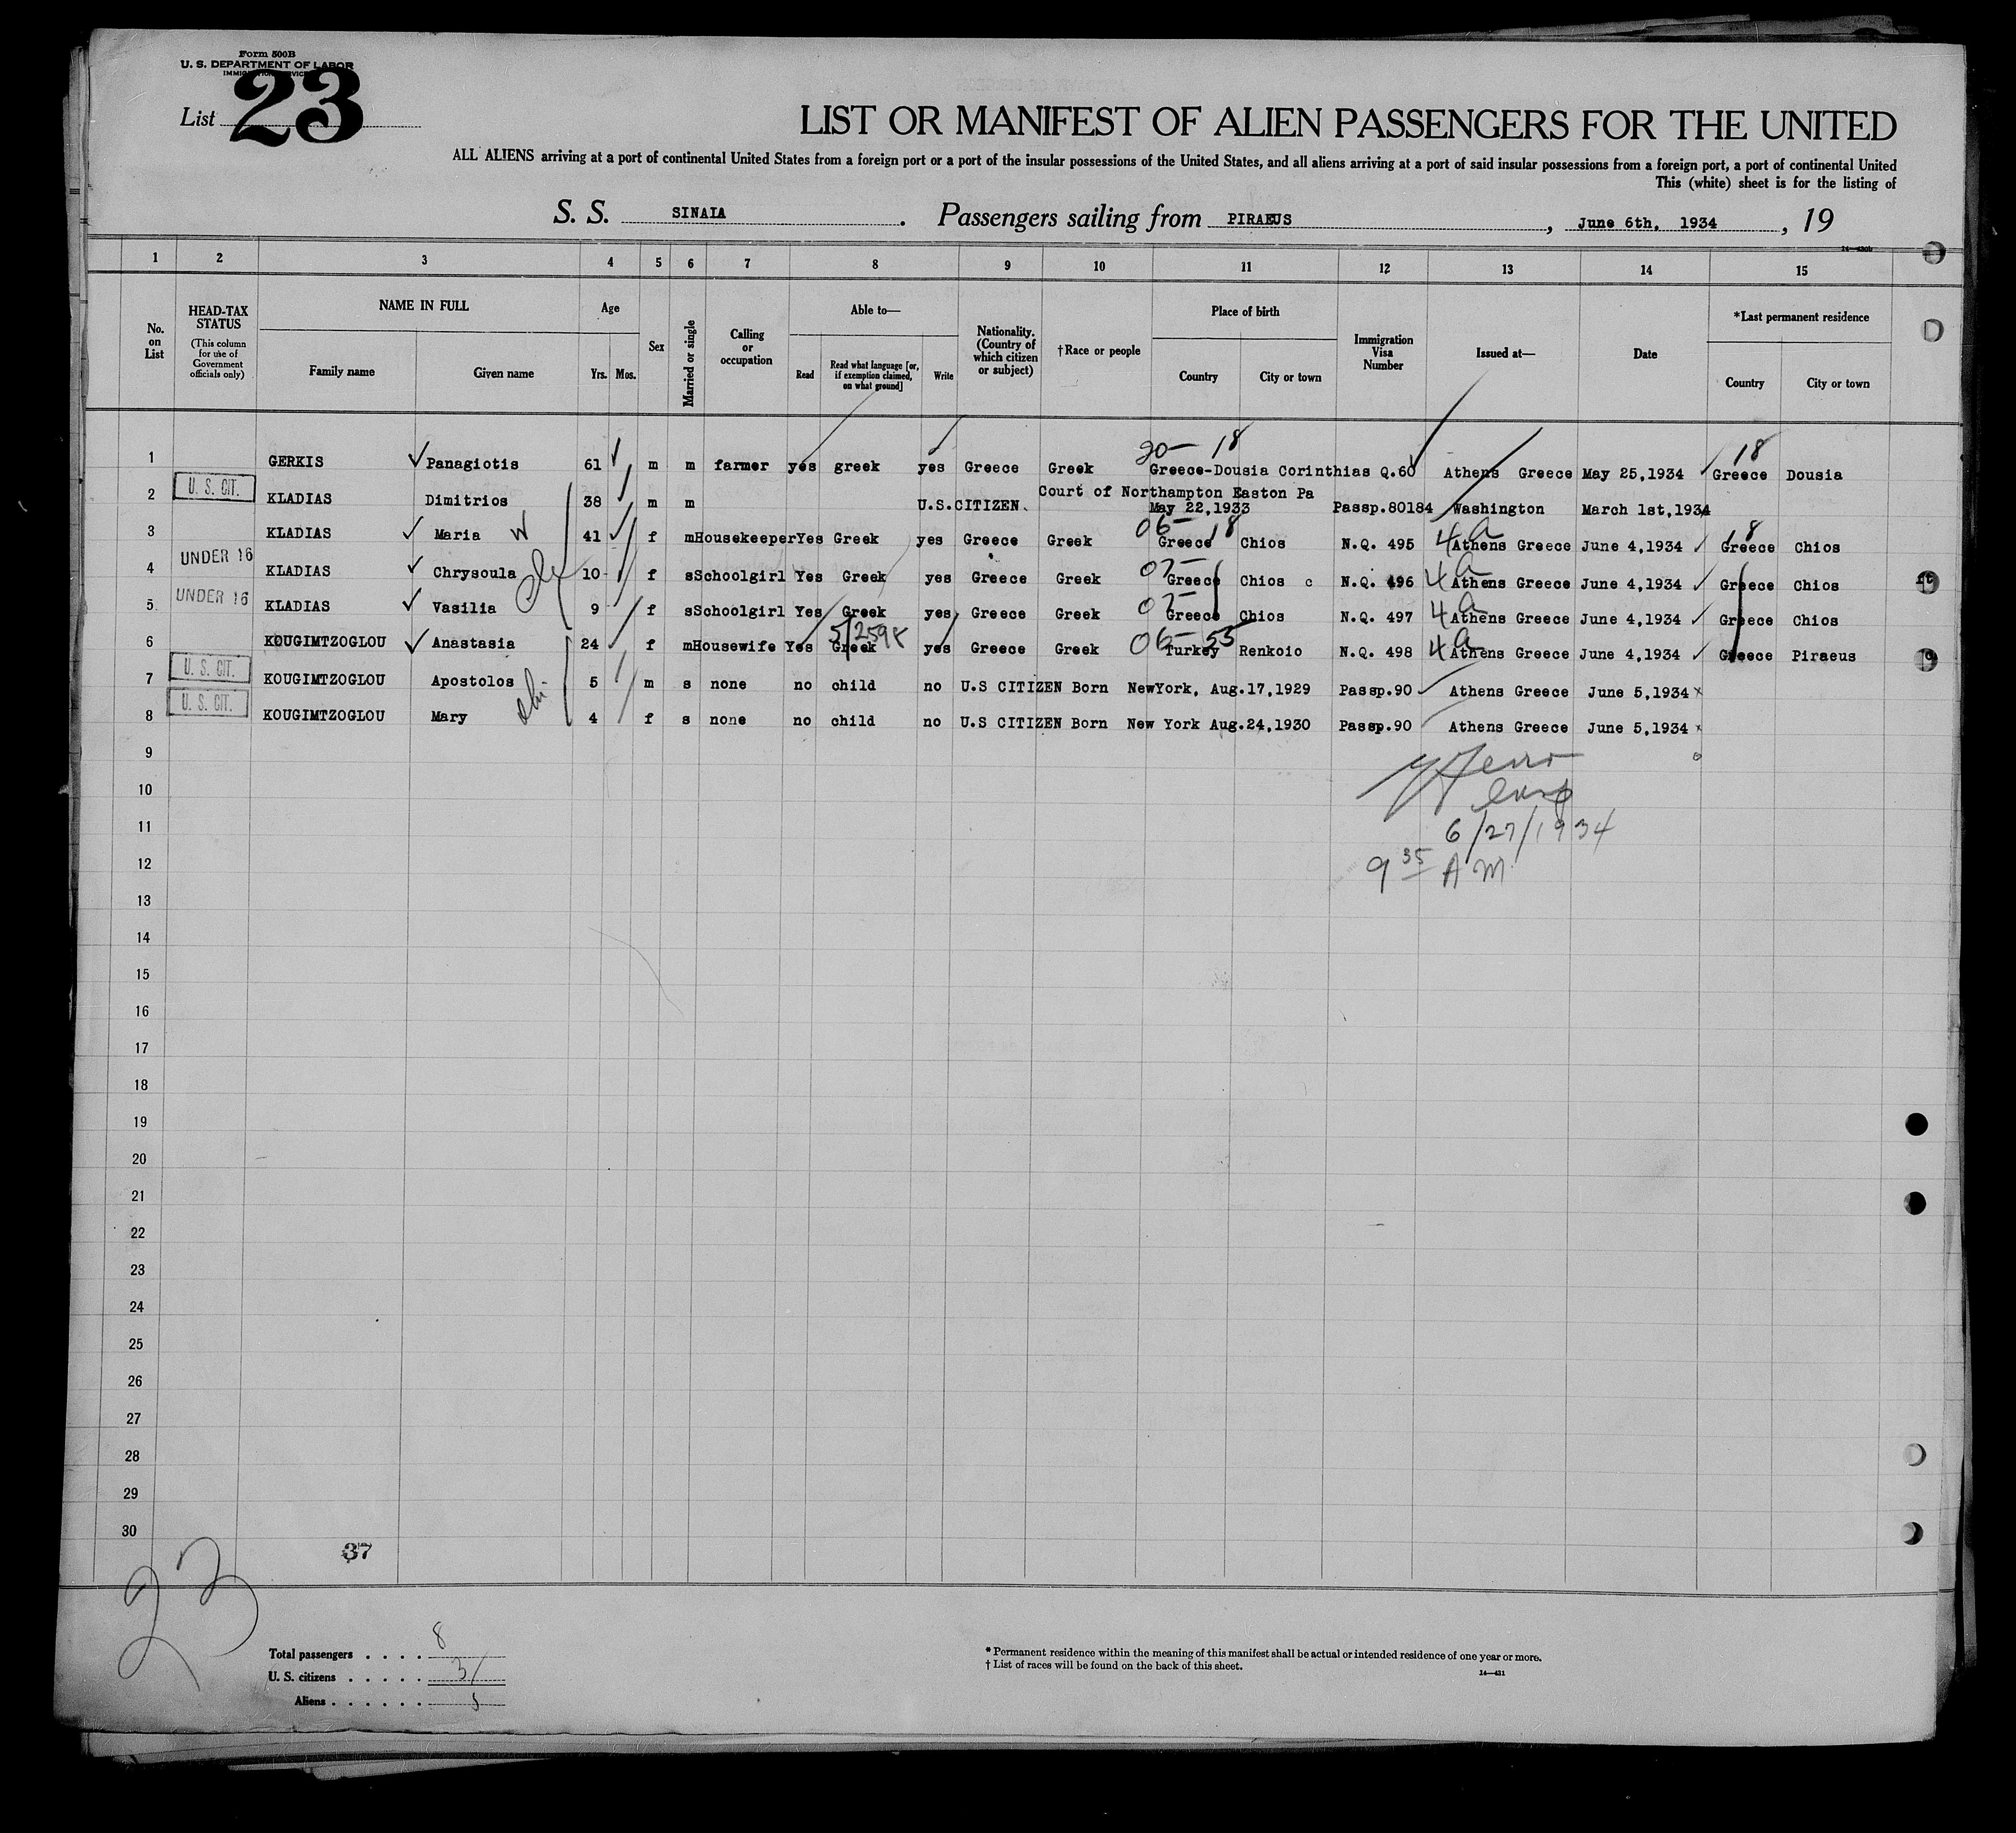 Form 500B
U. S. DEPARTMENT OF LABOR
IMMIGRATION SERVICE
List 23
LIST OR MANIFEST OF ALIEN PASSENGERS FOR THE UNITED
ALL ALIENS arriving at a port of continental United States from a foreign port or a port of the insular possessions of the United States, and all aliens arriving at a port of said insular possessions from a foreign port, a port of continental United
This (white) sheet is for the listing of
S. S. SINAIA. Passengers sailing from PIRAEUS, June 6th, 1934, 19
1 2 3 4 5 6 7 8 9 10 11 12 13 14 15
No. on List
HEAD-TAX STATUS (This column for use of Government officials only)
NAME IN FULL Family name Given name
Age Yrs. Mos.
Sex
Married or single
Calling or occupation
Able to— Read Read what language [or, if exemption claimed, on what ground] Write
Nationality. (Country of which citizen or subject)
†Race or people
Place of birth Country City or town
Immigration Visa Number
Issued at—
Date
*Last permanent residence Country City or town
20— 18 18
1 GERKIS Panagiotis 61 m m farmer yes greek yes Greece Greek Greece-Dousia Corinthias Q.60 Athens Greece May 25,1934 Greece Dousia
Court of Northampton Easton Pa
2 U. S. CIT. KLADIAS Dimitrios 38 m m U.S.CITIZEN. May 22,1933 Passp.80184 Washington March 1st,1934
06— 18 4 a 18
3 KLADIAS Maria W 41 f m Housekeeper Yes Greek yes Greece Greek Greece Chios N.Q. 495 Athens Greece June 4,1934 Greece Chios
UNDER 16 07— 4 a
4 KLADIAS Chrysoula 10 f s Schoolgirl Yes Greek yes Greece Greek Greece Chios c N.Q. 496 Athens Greece June 4,1934 Greece Chios
UNDER 16 07— 4 a
5 KLADIAS Vasilia 9 f s Schoolgirl Yes Greek yes Greece Greek Greece Chios N.Q. 497 Athens Greece June 4,1934 Greece Chios
06— 55 4 a
6 KOUGIMTZOGLOU Anastasia 24 f m Housewife Yes Greek yes Greece Greek Turkey Renkoio N.Q. 498 Athens Greece June 4,1934 Greece Piraeus
7 U. S. CIT. KOUGIMTZOGLOU Apostolos 5 m s none no child no U.S CITIZEN Born NewYork, Aug.17,1929 Passp.90 Athens Greece June 5,1934
8 U. S. CIT. KOUGIMTZOGLOU Mary 4 f s none no child no U.S CITIZEN Born New York Aug.24,1930 Passp.90 Athens Greece June 5,1934
9
10
11 6/27/1934
12 9 35 A M
13
14
15
16
17
18
19
20
21
22
23
24
25
26
27
28
29
30
37
23
Total passengers . . . . 8
U. S. citizens . . . . . 3
Aliens . . . . . . 5
* Permanent residence within the meaning of this manifest shall be actual or intended residence of one year or more.
† List of races will be found on the back of this sheet.
14—431